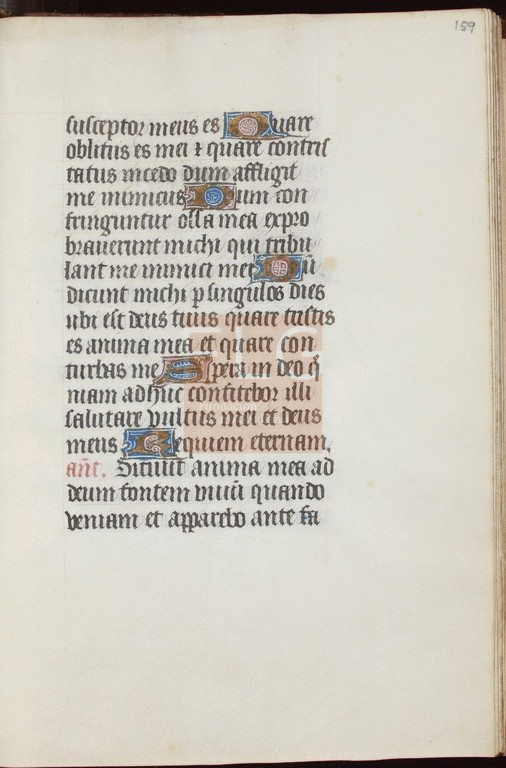 159
susceptor meus es Quare
oblitus es mei ⁊ quare contris
tatus incedo dum affligit
me inimicus Dum con
fringuntur ossa mea expro
braverunt michi qui tribu
lant me inimici mei Dū
dicunt michi ꝑ singulos dies
ubi est deus tuus quare tristis
es anima mea et quare con
turbas me Spera in deo qm̄
niam adhuc confitebor illi
salutare vultus mei et deus
meus Requiem eternam.
añt. Sitivit anima mea ad
deum fontem vivū quando
veniam et apparebo ante fa